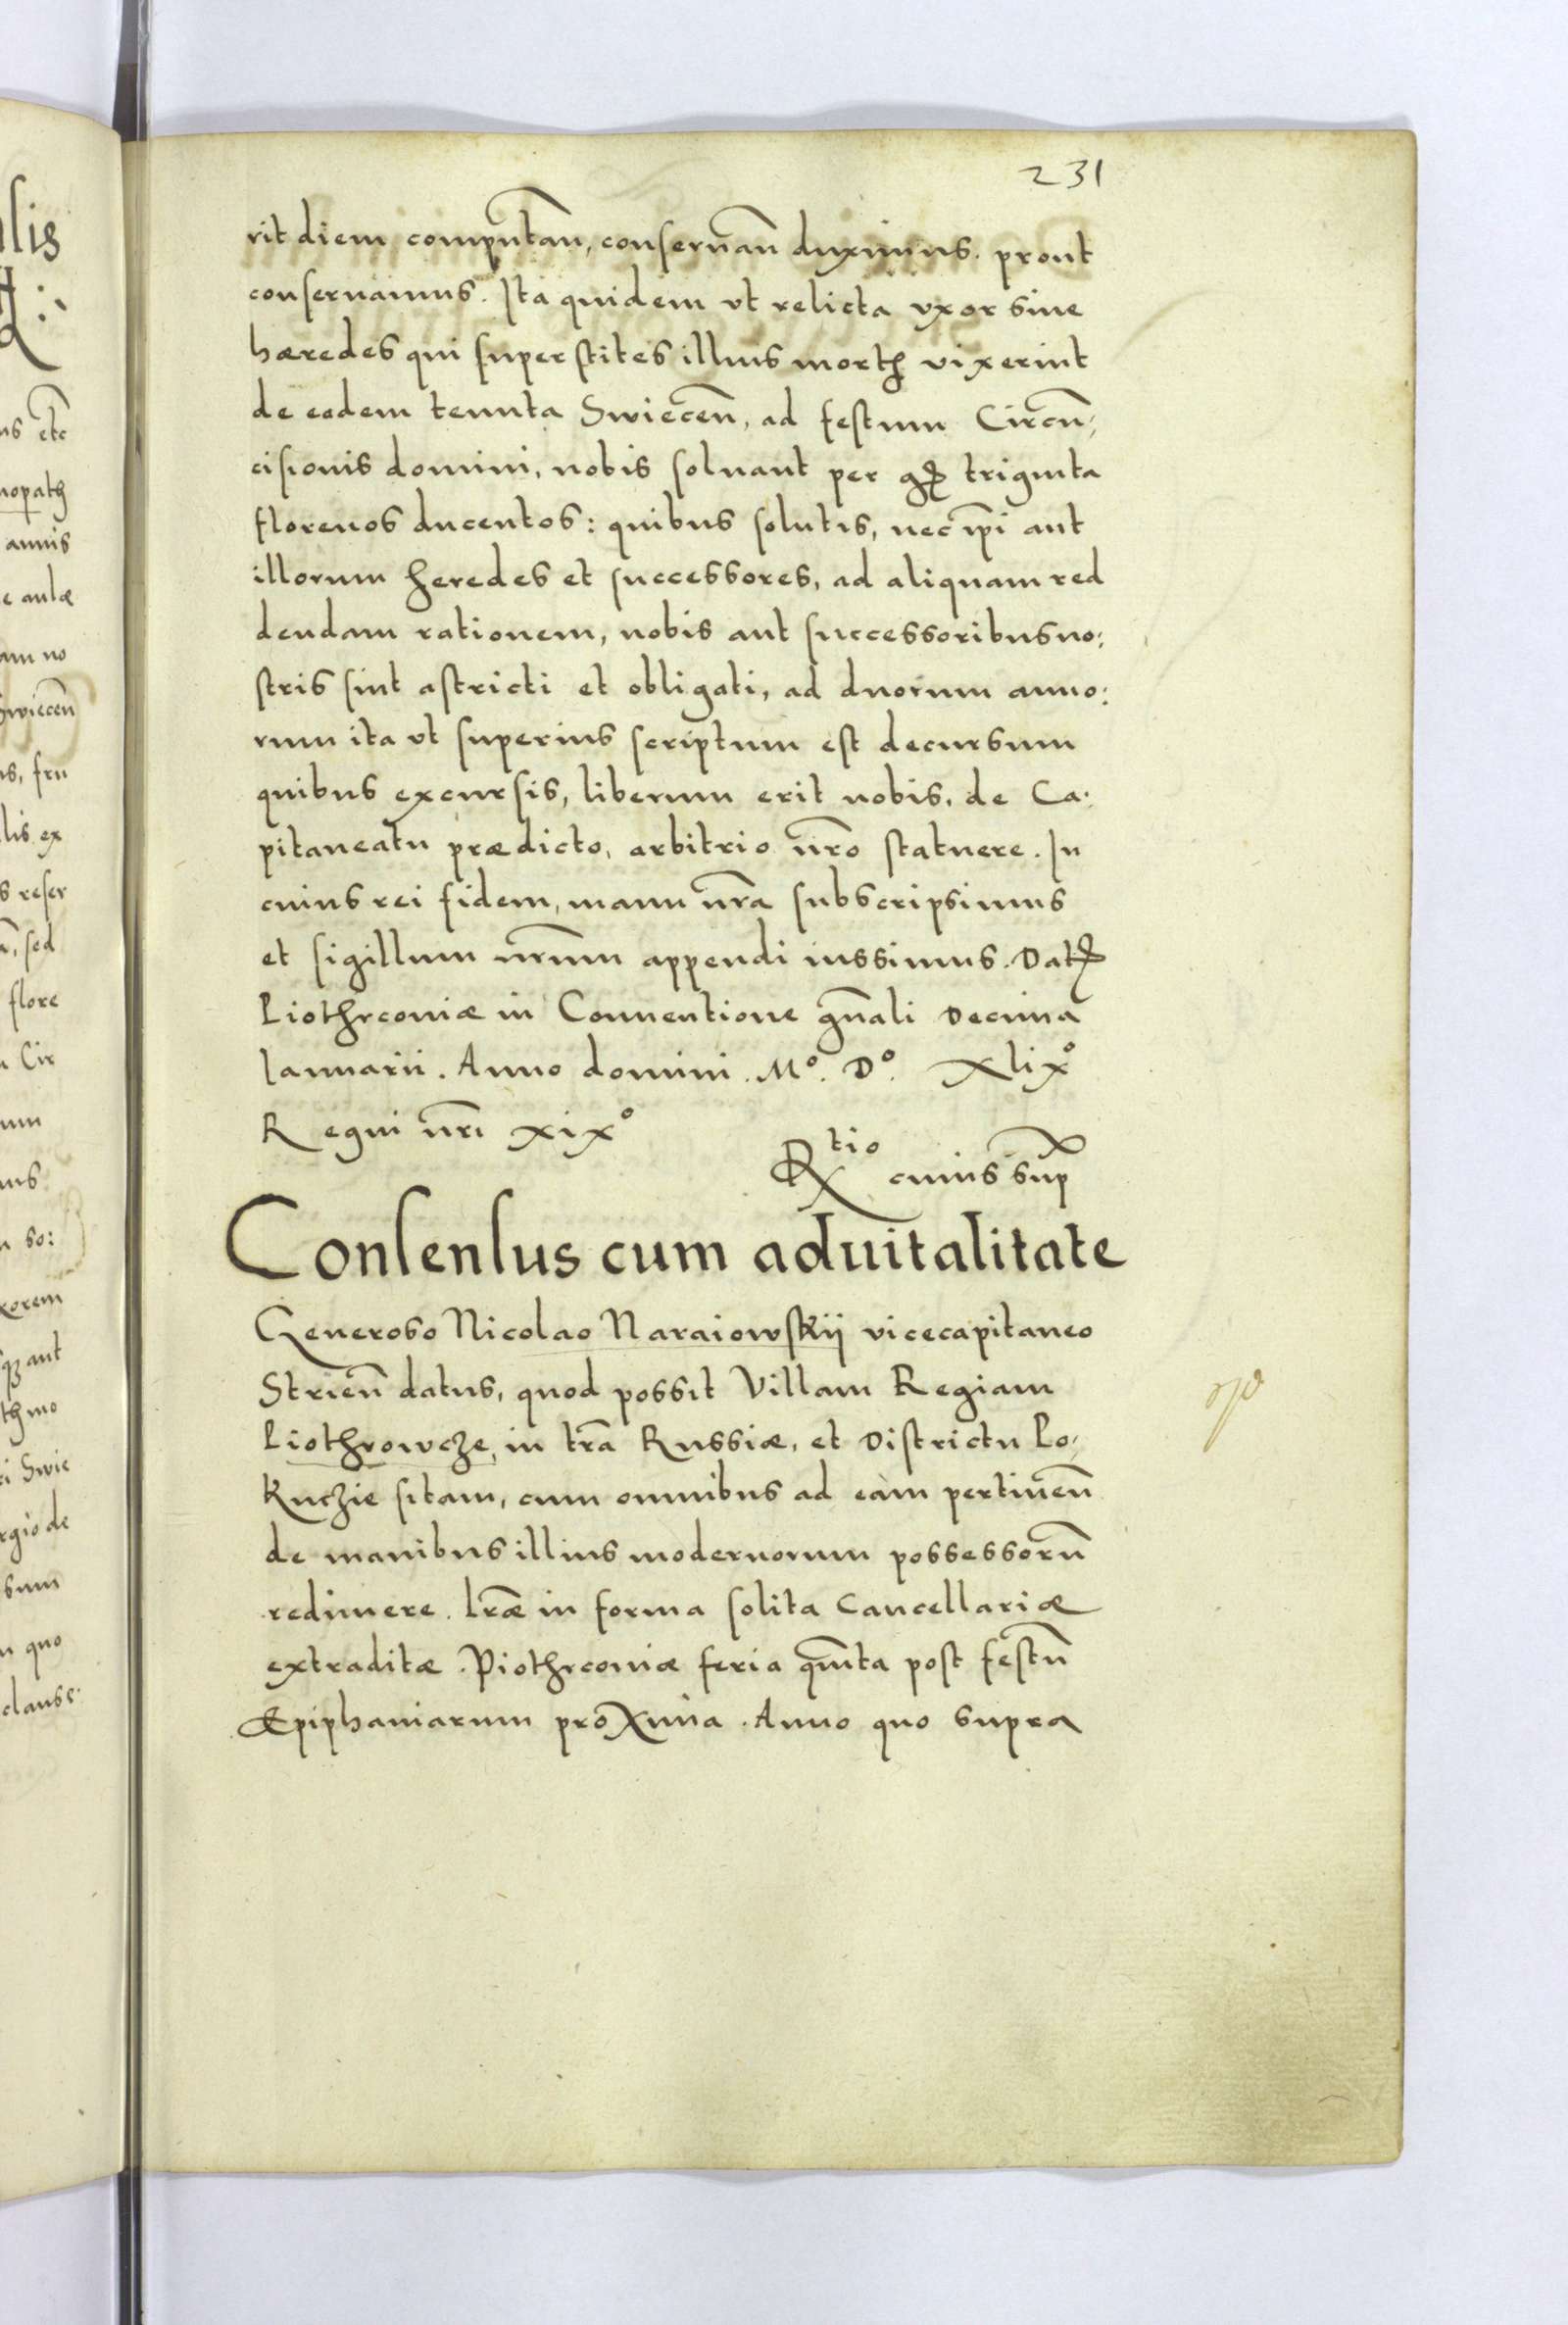 231
rit diem computan̄, conseruan̄ duximus. prout
conseruamus. Ita quidem vt relicta vxor siue
hæredes qui superstites illius morti vixerint
de eedem tenuta Swiecen̄, ad festum Circu̅,
cisionis domini, nobis soluant per gꝫ triginta
florenos ducentos: quibus solutis, nec ip̄i aut
illorum heredes et successores, ad aliquam red
dendam rationem, nobis aut successoribus no:
stris sint astricti et obligati, ad duorum anno:
rum ita vt superius scriptum est decursum
quibus excursis, liberum erit nobis, de Ca.
pitaneatu prædicto, arbitrio nr̄o statuere. In
cuius rei fidem, manu nr̄a subscripsimus
et sigillum nr̄um appendi iussimus. Datꝫ
Piothrconiæ in Conuentione gn̄ali Decima
Ianuarii. Anno domini. Mº. Dº. xlixº
Regni nr̄i xixº
Rtio cuius sup̄
Consensus cum aduitalitate
Generoso Nicolao Naraiowskij vicecapitaneo
Strien̄ datus, quod possit Villam Regiam
Piothrowcze, in tr̄a Russiæ, et Districtu Po,
kuczie sitam, cum omnibus ad eam pertinen̄
de manibus illius modernorum possessoru̅
redimere. Lr̄æ in forma solita Cancellariæ
extraditæ. Piothrconiæ feria qui̅ta post festu̅
Epiphaniarum proxima. Anno quo supra